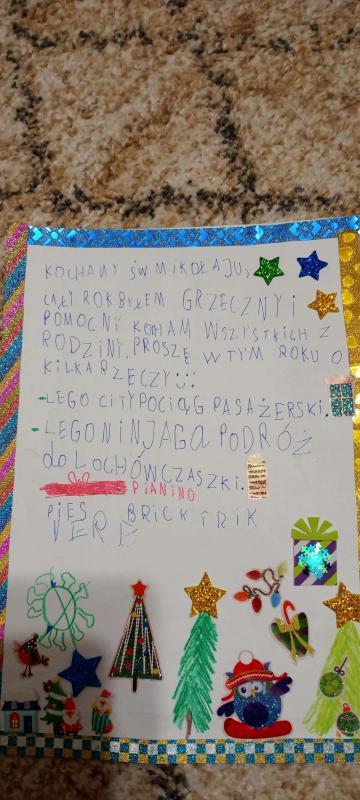 KOCHANY ŚW MIKOŁAJU,
CAŁI ROK BYŁEM GRZECZNY i
POMOCNI KOHAM WSZYSTKICH Z
RODZINI. PROSZĘ W TYM ROKU O
KILKA RZECZY:
-LEGO CITY POCIĄG PASAŻERSKI.
-LEGO NINJAGO PODRÓŻ
do LOCHÓW CZASZKI.
PIANINO
PIES BRICK TRIK